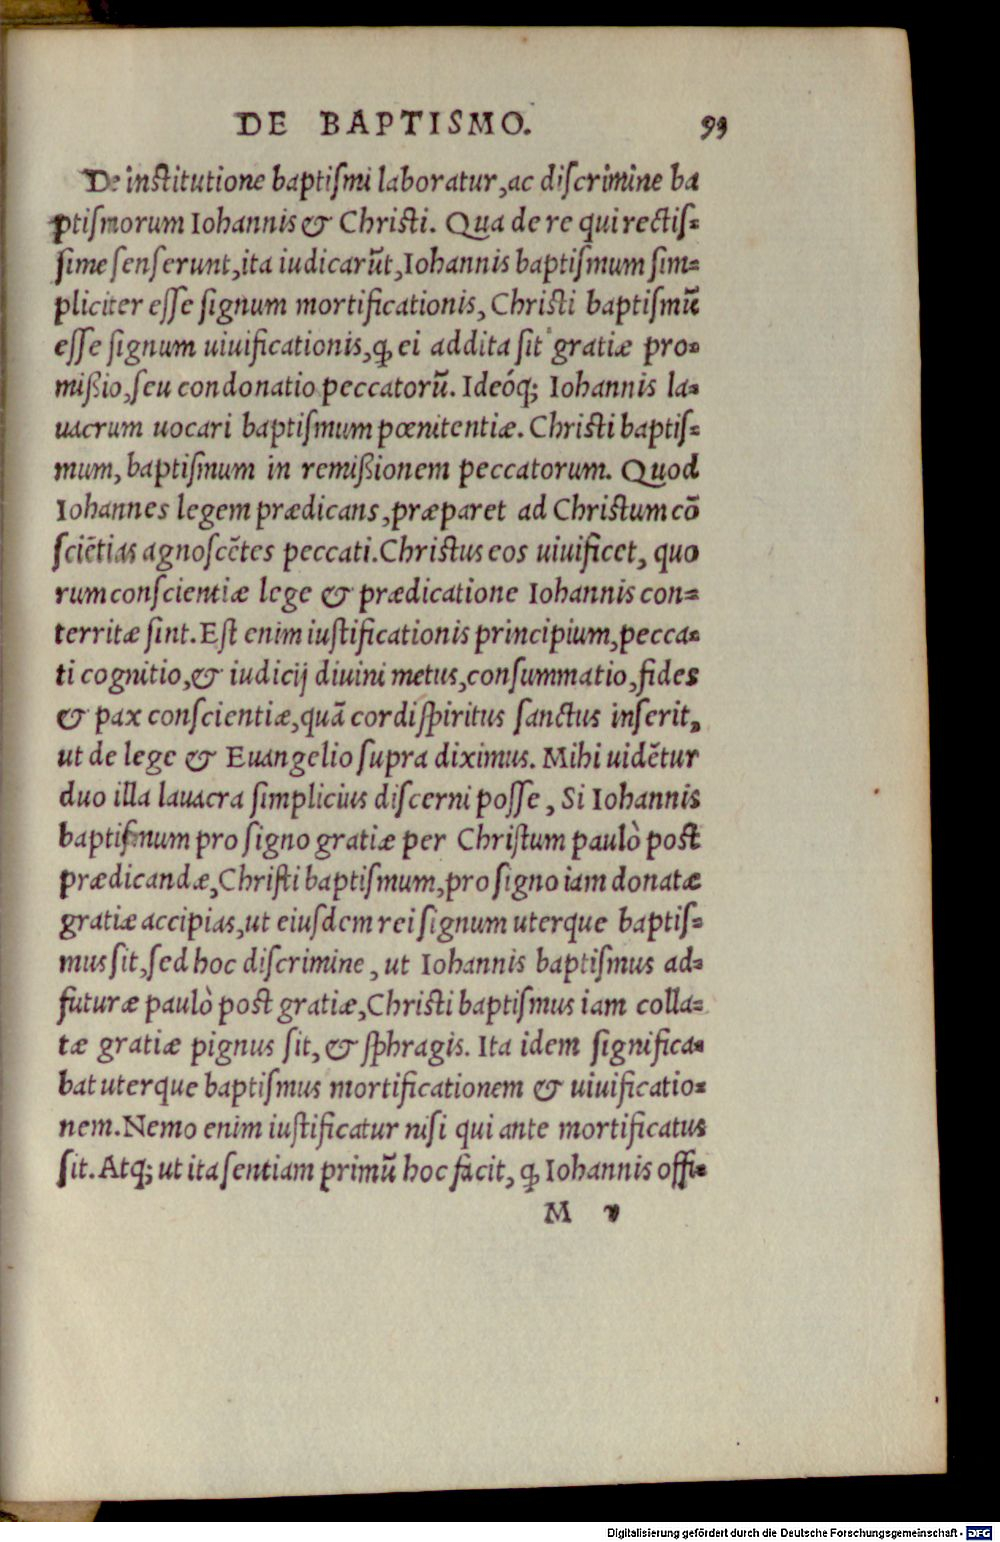 DE BAPTISMO. 93
De institutione baptiſmi laboratur, ac diſcrimine ba
ptiſmorum Iohannis & Chriſti. Qua de re qui rectiſ-
ſime ſenſerunt, ita iudicarūt, Iohannis baptiſmum ſim-
pliciter eſſe ſignum mortificationis, Chriſti baptiſmū
eſſe ſignum uiuificationis, ꝙ ei addita ſit gratiæ pro-
mißio, ſeu condonatio peccatorū. Ideóq; Iohannis la-
uacrum uocari baptiſmum pœnitentiæ. Chriſti baptiſ-
mum, baptiſmum in remißionem peccatorum. Quod
Iohannes legem prædicans, præparet ad Chriſtum cō
ſciētias agnoſcētes peccati. Chriſtus eos uiuificet, quo
rum conſcientiæ lege & prædicatione Iohannis con-
territæ ſint. Eſt enim iuſtificationis principium, pecca-
ti cognitio, & iudicij diuini metus, conſummatio, fides
& pax conſcientiæ, quā cordi ſpiritus ſanctus inſerit,
ut de lege & Euangelio ſupra diximus. Mihi uidētur
duo illa lauacra ſimplicius diſcerni poſſe, Si Iohannis
baptiſmum pro ſigno gratiæ per Chriſtum paulò poſt
prædicandæ, Chriſti baptiſmum, pro ſigno iam donatæ
gratiæ accipias, ut eiuſdem rei ſignum uterque baptiſ-
mus ſit, ſed hoc diſcrimine, ut Iohannis baptiſmus ad-
futuræ paulò poſt gratiæ, Chriſti baptiſmus iam colla-
tæ gratiæ pignus ſit, & ſphragis. Ita idem ſignifica-
bat uterque baptiſmus mortificationem & uiuificatio-
nem. Nemo enim iuſtificatur niſi qui ante mortificatus
ſit. Atq; ut ita ſentiam primū hoc facit, ꝙ Iohannis offi-
M v
Digitalisierung gefördert durch die Deutsche Forschungsgemeinschaft - DFG